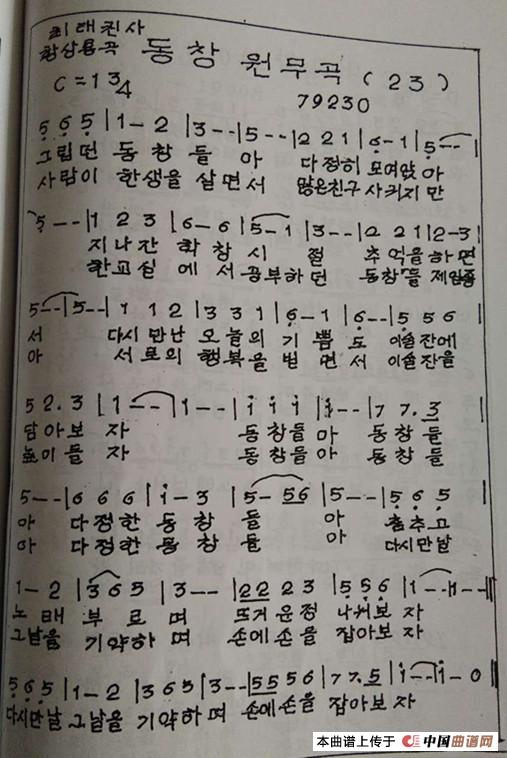 최태진 사
황상용 곡
동창 원무곡 (23)
C=1 3/4
79230
5 6 5 | 1 - 2 | 3 - - | 5 - - | 2 2 1 | 6 - 1 | 5 - - |
그립던 동창들 아 다정히 모여앉아
사람이 한생을 살면서 많은친구 사귀지만
5 - - | 1 2 3 | 6 - 6 | 5 - 1 | 3 - - | 2 2 1 | 2 - 3 |
지나간 학창시절 추억을 하면
한교실에서 공부하던 동창들 제일좋
5 - - | 5 - - | 1 1 2 | 3 3 1 | 6 - 1 | 6 - - | 5 5 6
서 다시만난 오늘의 기쁨도 이술잔에
아 서로의 행복을 빌면서 이술잔을
5 2. 3 | 1 - - | 1 - - | i i i | i - - | 7 7. 3 |
담아보자 동창들아 동창들
높이들자 동창들아 동창들
5 - - | 6 6 6 | i - 3 | 5 - 56 | 5 - - | 5 6 5 |
아 다정한 동창들아 춤추고
아 다정한 동창들아 다시만날
1 - 2 | 3 6 5 | 3 - - | 22 2 3 | 5 5 6 | 1 - - | 1 - - ||
노래 부르며 뜨거운정 나눠보자
그날을 기약하며 손에손을 잡아보자
5 6 5 | 1 - 2 | 3 6 5 | 3 - - | 55 5 6 | 7 7. 5 | i - - | i - 0 ||
다시만날 그날을 기약하며 손에손을 잡아보자
本曲谱上传于 中国曲谱网